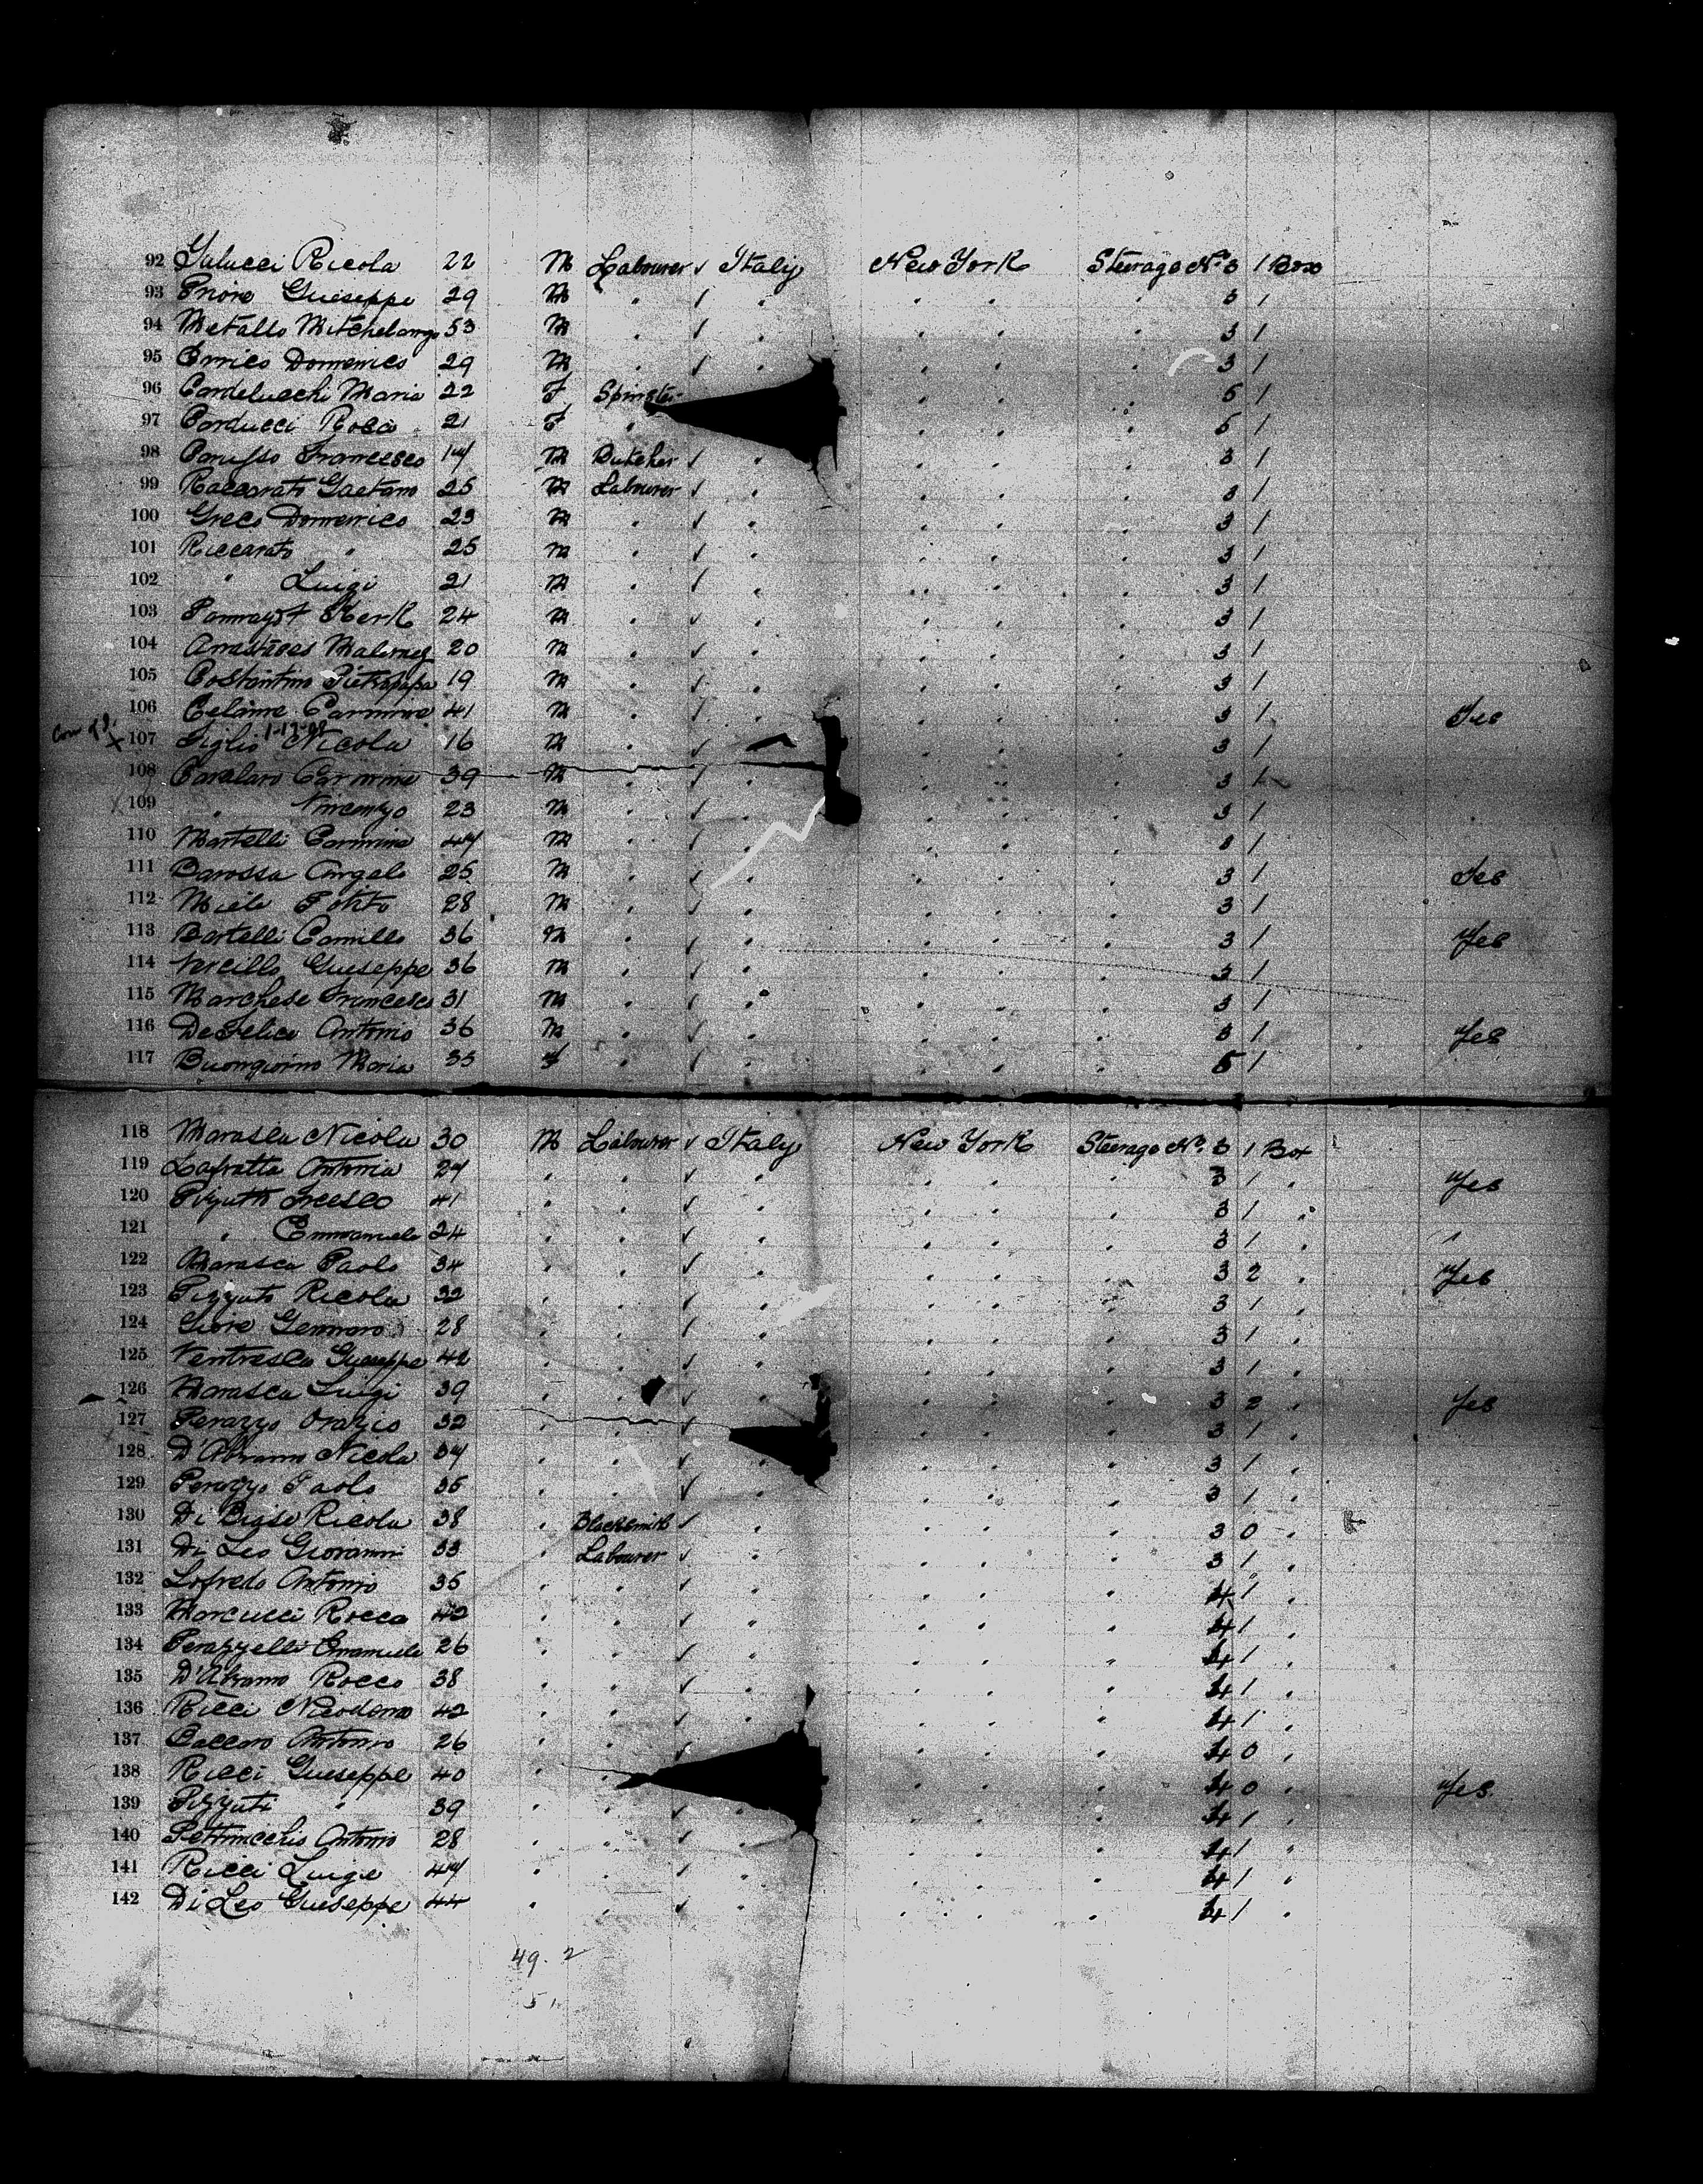 92 Galucci Nicola 22 M Labourer ✓ Italy New York Steerage No. 3 1 Box
93 Priore Guiseppe 29 M " / " " " " 3 1
94 Metallo Mitchelango 53 M " / " " " " 3 1
95 Errico Domenico 29 M " / " " " 3 1
96 Cardelucchi Maria 22 F Spinster " " " 5 1
97 Carducci Rosa 21 F " " " " 5 1
98 Carusso Francesco 14 M Butcher / " " " 3 1
99 Raccarato Gaetano 25 M Labourer / " " " " 3 1
100 Greco Domenico 23 M " ✓ " " " " 3 1
101 Riccarato " 25 M " ✓ " " " " 3 1
102 " Luigi 21 M " / " " " " 3 1
103 24 M " ✓ " " " " 3 1
104 20 M " ✓ " " " " 3 1
105 Costantino Pietrapapa 19 M " ✓ " " " " 3 1
106 Celaine Carmine 41 M " / " " " " 3 1 Yes
107 Giglio Nicola 16 M " ✓ " " " 3 1
108 Cavalaro Carmine 39 M " ✓ " " " 3 1
109 " Vincenzo 23 M " ✓ " " " 3 1
110 Martelli Carmine 44 M " ✓ " " " " 3 1
111 Barossa Angelo 25 M " ✓ " " " " 3 1 Yes
112 Miele Potito 28 M " ✓ " " " " 3 1
113 Bartelli Camillo 36 M " ✓ " " " " 3 1 Yes
114 Vercillo Guiseppe 36 M " ✓ " " " " 3 1
115 Marchese Francesco 31 M " ✓ " " " " 3 1
116 DeFelice Antonio 36 M " ✓ " " " " 3 1 Yes
117 Buongiorno Maria 35 F " / " " " " 5 1
118 Marasca Nicola 30 M Labourer ✓ Italy New York Steerage No. 3 1 Box
119 Lafratta Antonia 24 " " ✓ " " " " 3 1 " Yes
120 Pizzutti 41 " " ✓ " " " " 3 1 "
121 " Emmanuele 24 " " ✓ " " " " 3 1 " "
122 Marasca Paolo 34 " " ✓ " " " " 3 2 " Yes
123 Pizzuti Nicola 32 " " ✓ " " " " 3 1 "
124 Gennaro 28 " " / " " " " 3 1 "
125 Ventresca Guiseppe 42 " " ✓ " " " " 3 1 "
126 Marasca Luigi 39 " ✓ " " " " 3 2 " Yes
127 Perazzo Orazio 32 " " ✓ " " " 3 1 "
128 D'Abramo Nicola 34 " " ✓ " " " " 3 1 "
129 Perazzo Paolo 35 " " ✓ " " " " 3 1 "
130 Di Biase Nicola 38 " Blacksmith ✓ " " " " 3 0 "
131 Di Leo Giovanni 33 " Labourer ✓ " " " " 3 1 "
132 Lofredo Antonio 35 " " ✓ " " " " 4 1 "
133 Marcucci Rocco 42 " " ✓ " " " " 4 1 "
134 Perazzelli Emanuele 26 " " ✓ " " " " 4 1 "
135 D'Abramo Rocco 38 " " ✓ " " " " 4 1 "
136 Ricci Nicodemo 42 " " ✓ " " " " 4 1 "
137 Caccaro Antonio 26 " " ✓ " " " 4 0 "
138 Ricci Guiseppe 40 " " " " " 4 0 " Yes
139 Pizzuti " 39 " " ✓ " " " " 4 1 "
140 Pettrincchio Antonio 28 " " ✓ " " " " 4 1 "
141 Ricci Luigi 44 " " ✓ " " " " 4 1 "
142 Di Leo Guiseppe 44 " " ✓ " " " " 4 1 "
49. 2
51